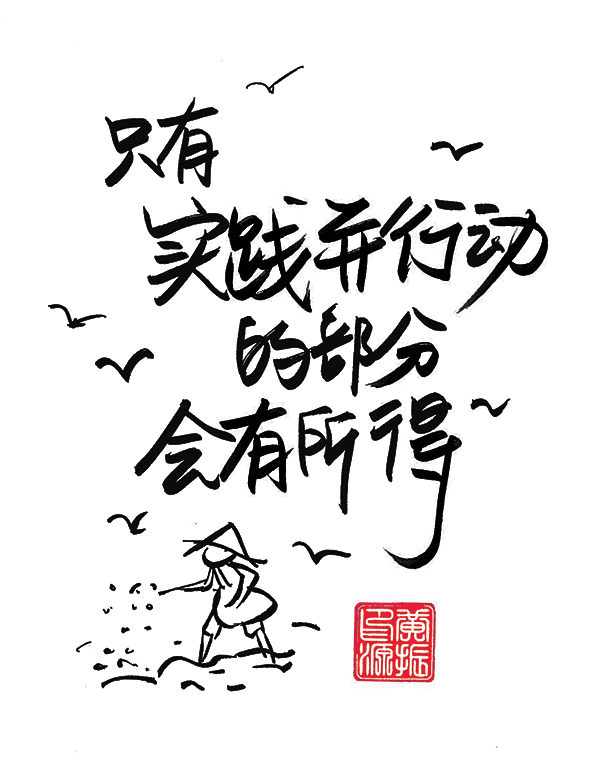 只有
实践并行动
的部分
会有所得
黄振
源印